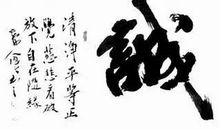 誠
清淨平等正
覺慈悲看破
放下自在隨緣